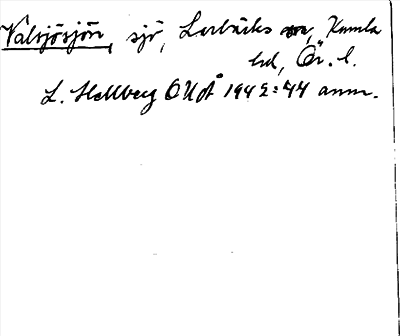 Valsjösjön, sjö, Lerbäcks sn, Kumla
hd, Ör. l.
L. Hellberg OUÅ 1942:44 anm.